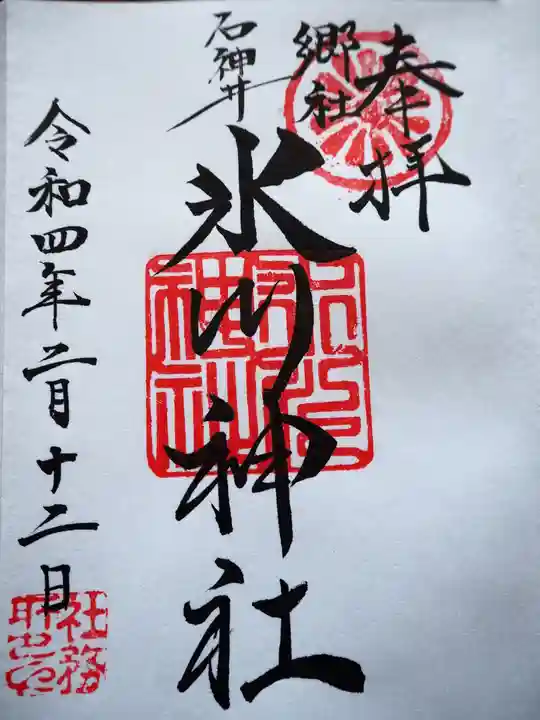 奉拝
郷社
石神井
氷川神社
令和四年二月十二日
氷川神社
社務所印